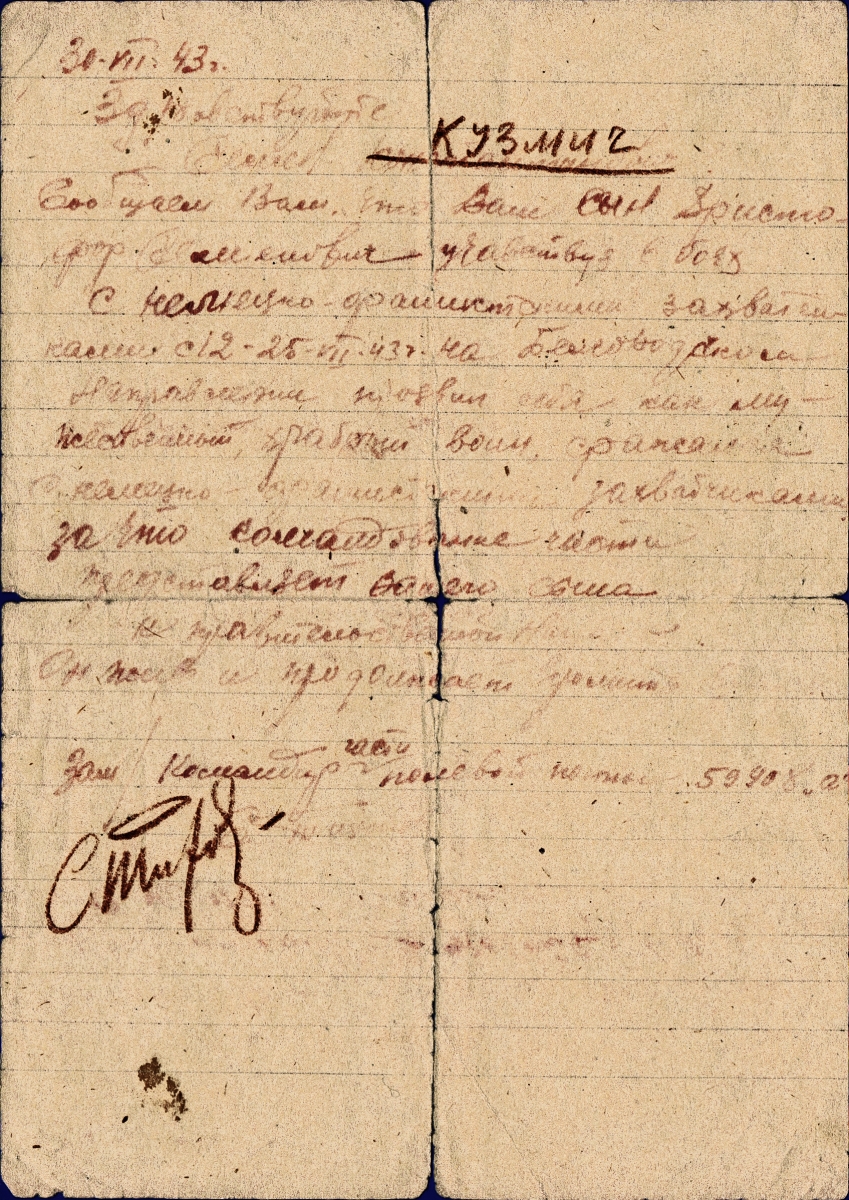 30-VII-43г.
Здравствуйте
Семен КУЗМИЧ
Сообщаем Вам, что Ваш сын Христо-
фор Семенович учавствуя в боях
с немецко-фашисткими захватчи-
ками с 12-25-VII-43г. на Беловодском
направлении проявил себя как му-
жественный, храбрый воин, сражаясь
с немецко-фашисткими захватчиками
за что командование части
представляет вашего сына
к правительственной
Он жив и продолжает громить
Зам Командир части полевой почты 59908 "а"